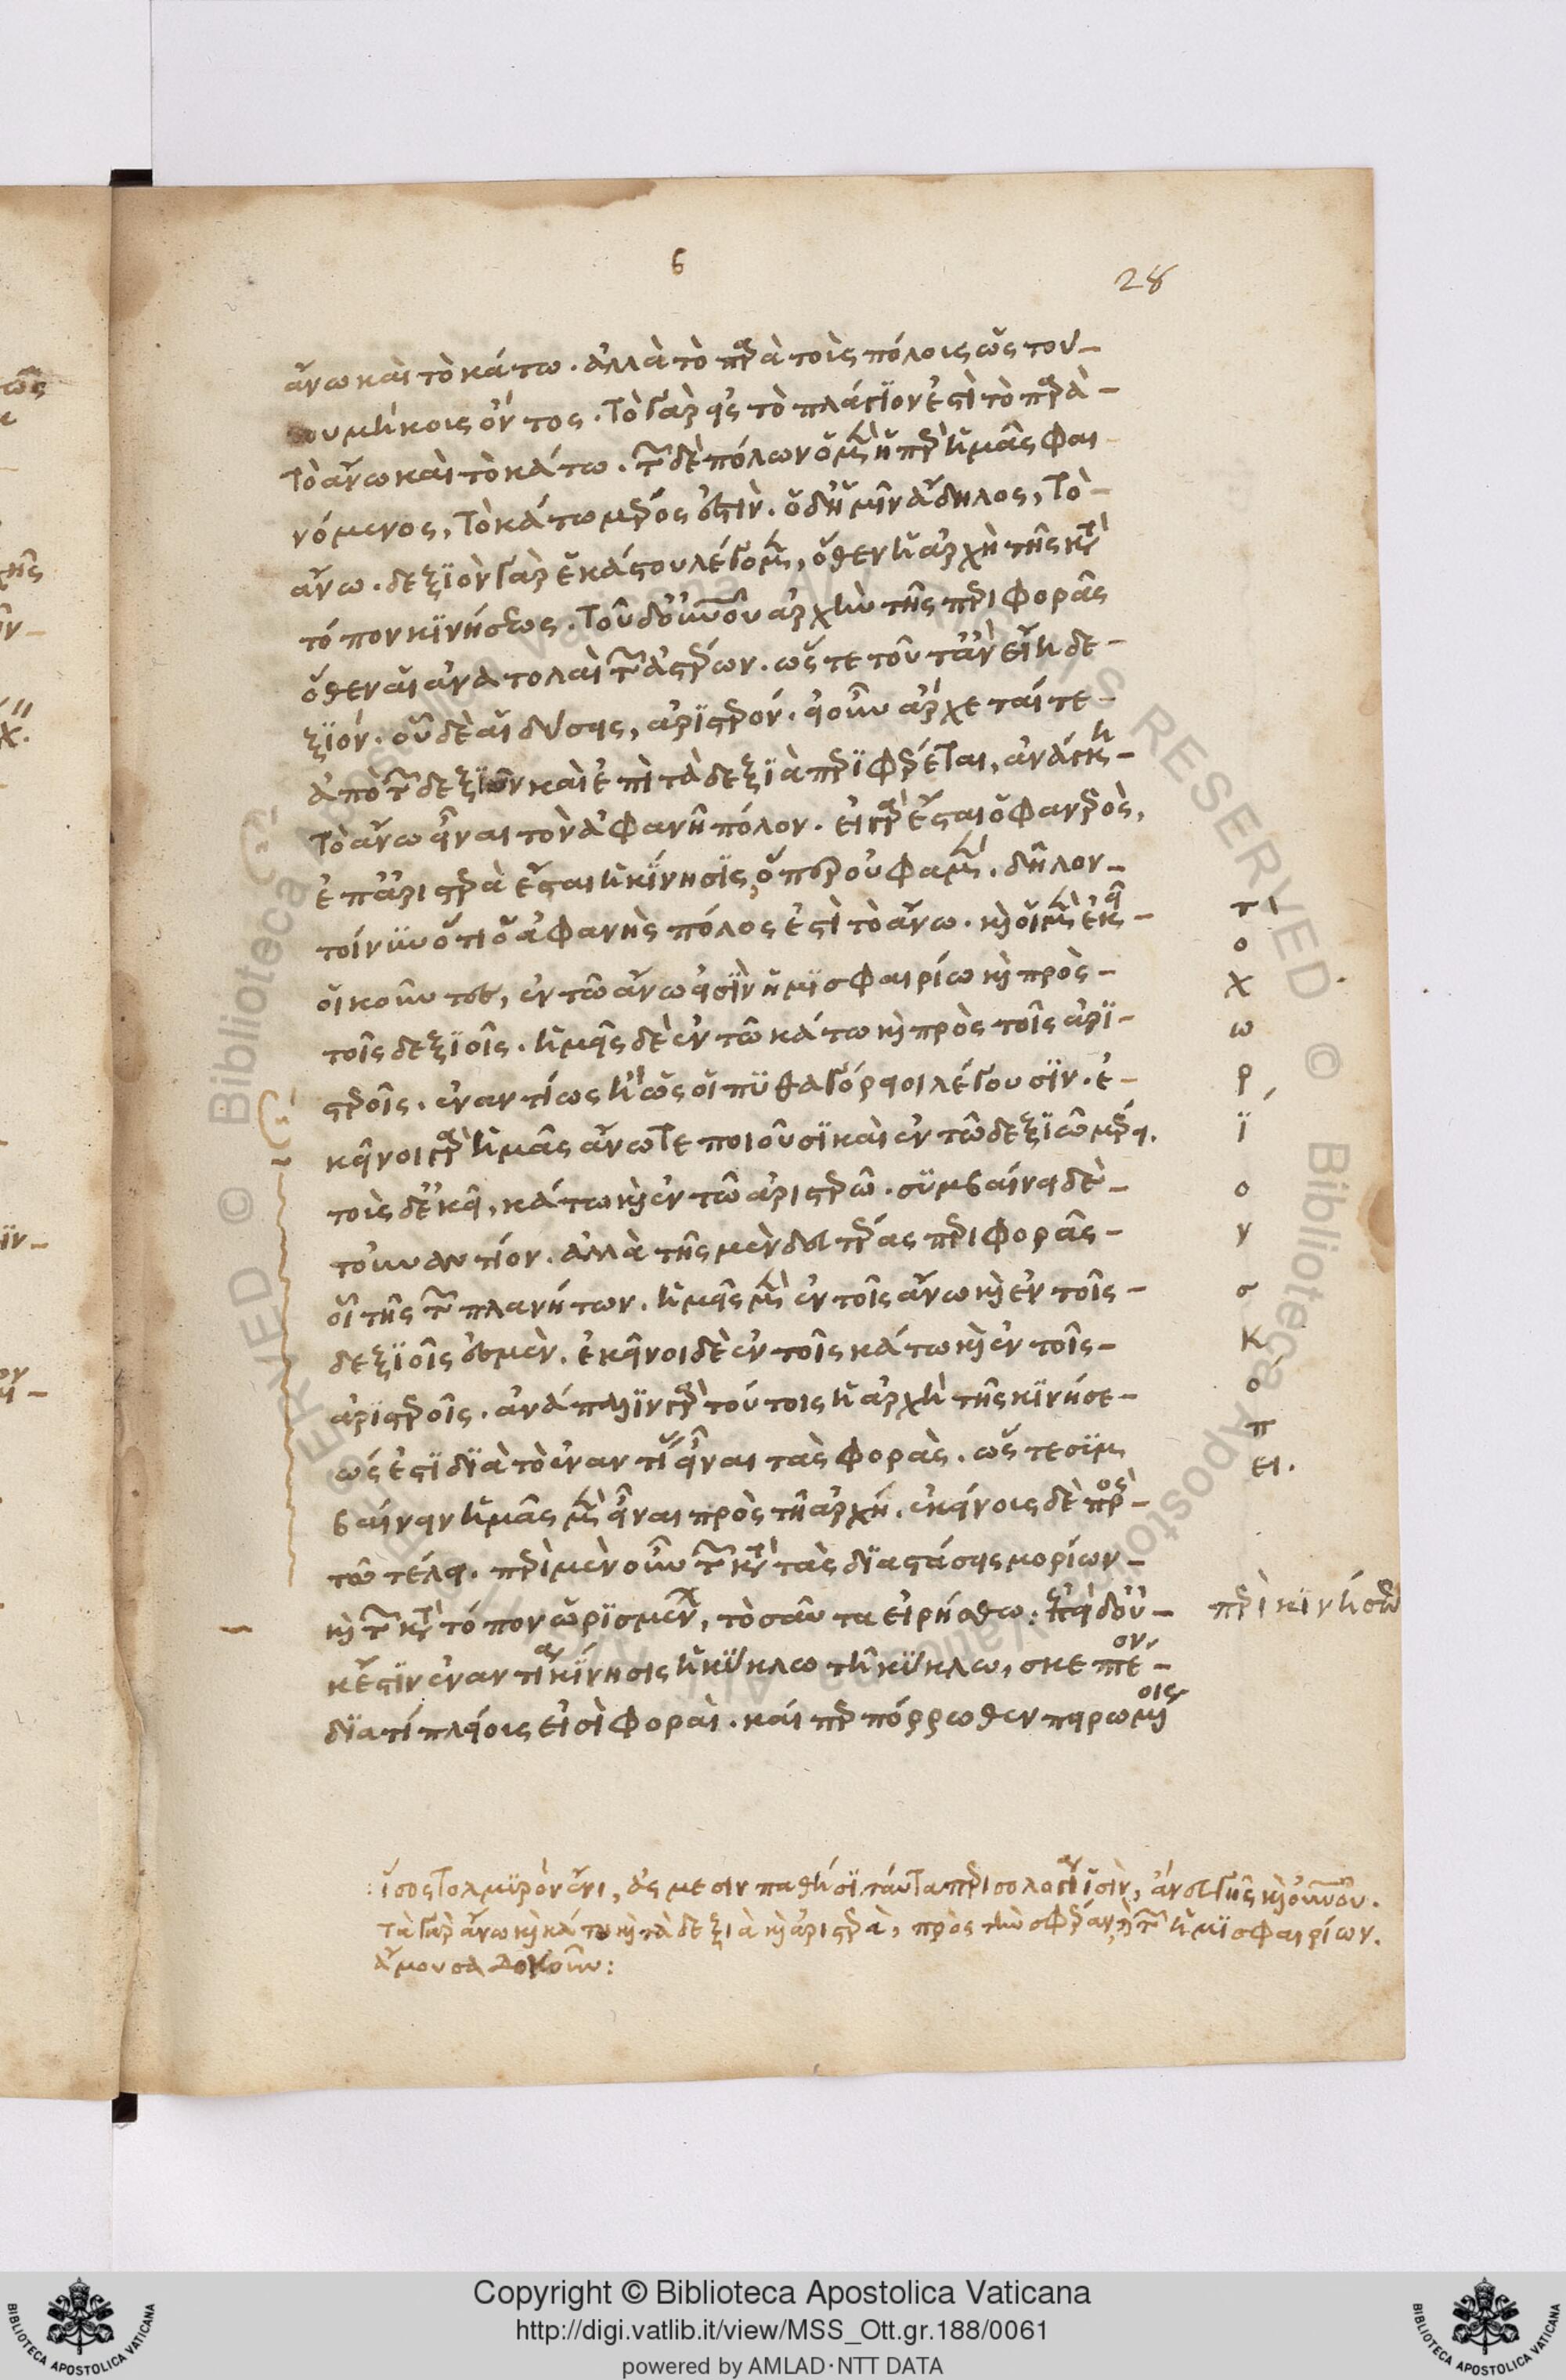 6
28
ἄνω καὶ τὸ κάτω. ἀλλὰ τὸ παρὰ τοὺς πόλους ὡς του
του μήκους ὄντος. τὸ γὰρ εἰς τὸ πλάγιόν ἐστι τὸ παρὰ
τὸ ἄνω καὶ τὸ κάτω. τῶν δὲ πόλων ὁ μὲν ὑπὲρ ἡμᾶς φαι
νόμενος, τὸ κάτω μέρος ἐστίν. ὁ δ' ἡμῖν ἄδηλος, τὸ
ἄνω. δεξιὸν γὰρ ἑκάστου λέγομεν, ὅθεν ἡ ἀρχὴ τῆς κατὰ
τόπον κινήσεως. τοῦ δ' οὐρανοῦ ἀρχὴν τῆς περιφορᾶς
ὅθεν αἱ ἀνατολαὶ τῶν ἀστέρων. ὥστε τοῦτ' ἂν εἴη δε
ξιόν. οὗ δὲ αἱ δύσεις, ἀριστερόν. εἰ οὖν ἄρχεταί τε
ἀπὸ τῶν δεξιῶν καὶ ἐπὶ τὰ δεξιὰ περιφέρεται, ἀνάγκη
τὸ ἄνω εἶναι τὸν ἀφανῆ πόλον. εἰ γὰρ ἔσται ὁ φανερὸς,
ἐπ' ἀριστερὰ ἔσται ἡ κίνησις, ὅπερ οὔ φαμεν. δῆλον
τοίνυν ὅτι ὁ ἀφανὴς πόλος ἐστὶ τὸ ἄνω. καὶ οἱ μὲν ἐκεῖ
οἰκοῦντες, ἐν τῷ ἄνω εἰσὶν ἡμισφαιρίῳ καὶ πρὸς
τοῖς δεξιοῖς. ἡμεῖς δὲ ἐν τῷ κάτω καὶ πρὸς τοῖς ἀρι
στεροῖς. ἐναντίως ἢ ὡς οἱ πυθαγόρειοι λέγουσιν. ἐ
κεῖνοι γὰρ ἡμᾶς ἄνω τε ποιοῦσι καὶ ἐν τῷ δεξιῷ μέρει.
τοὺς δ' ἐκεῖ, κάτω καὶ ἐν τῷ ἀριστερῷ. συμβαίνει δὲ
τοὐναντίον. ἀλλὰ τῆς μὲν δευτέρας περιφορᾶς
οἷον τῆς τῶν πλανήτων. ἡμεῖς μὲν ἐν τοῖς ἄνω καὶ ἐν τοῖς
δεξιοῖς ἐσμέν. ἐκεῖνοι δὲ ἐν τοῖς κάτω καὶ ἐν τοῖς
ἀριστεροῖς. ἀνάπαλιν γὰρ τούτοις ἡ ἀρχὴ τῆς κινήσε
ώς ἐστι διὰ τὸ ἐναντίας εἶναι τὰς φοράς. ὥστε συμ
βαίνειν ἡμᾶς μὲν εἶναι πρὸς τῇ ἀρχῇ. ἐκείνους δὲ πρὸς
τῷ τέλει. περὶ μὲν οὖν τῶν κατὰ τὰς διαστάσεις μορίων
καὶ τῶν κατὰ τόπον ὡρισμένων, τοσαῦτα εἰρήσθω: ἐπεὶ δ' οὐ
κ ἔστιν ἐναντία κίνησις ἡ κύκλῳ τῇ κύκλῳ, σκεπτέον
διατί πλείους εἰσὶ φοραί. καίπερ πόρρωθεν πειρωμένοις
τ
ο
χ
ω
ρ
ί
ο
ν
σ
κ
ό
π
ει.
περὶ κινήσεων
: ἴσως τολμηρὸν
τὰ γὰρ ἄνω καὶ κάτω καὶ τὰ δεξιὰ καὶ ἀριστερὰ, πρὸς τὴν σφαῖραν καὶ τῶν ἡμισφαιρίων.
Copyright © Biblioteca Apostolica Vaticana
http://digi.vatlib.it/view/MSS_Ott.gr.188/0061
powered by AMLAD·NTT DATA
BIBLIOTECA APOSTOLICA VATICANA
BIBLIOTECA APOSTOLICA VATICANA